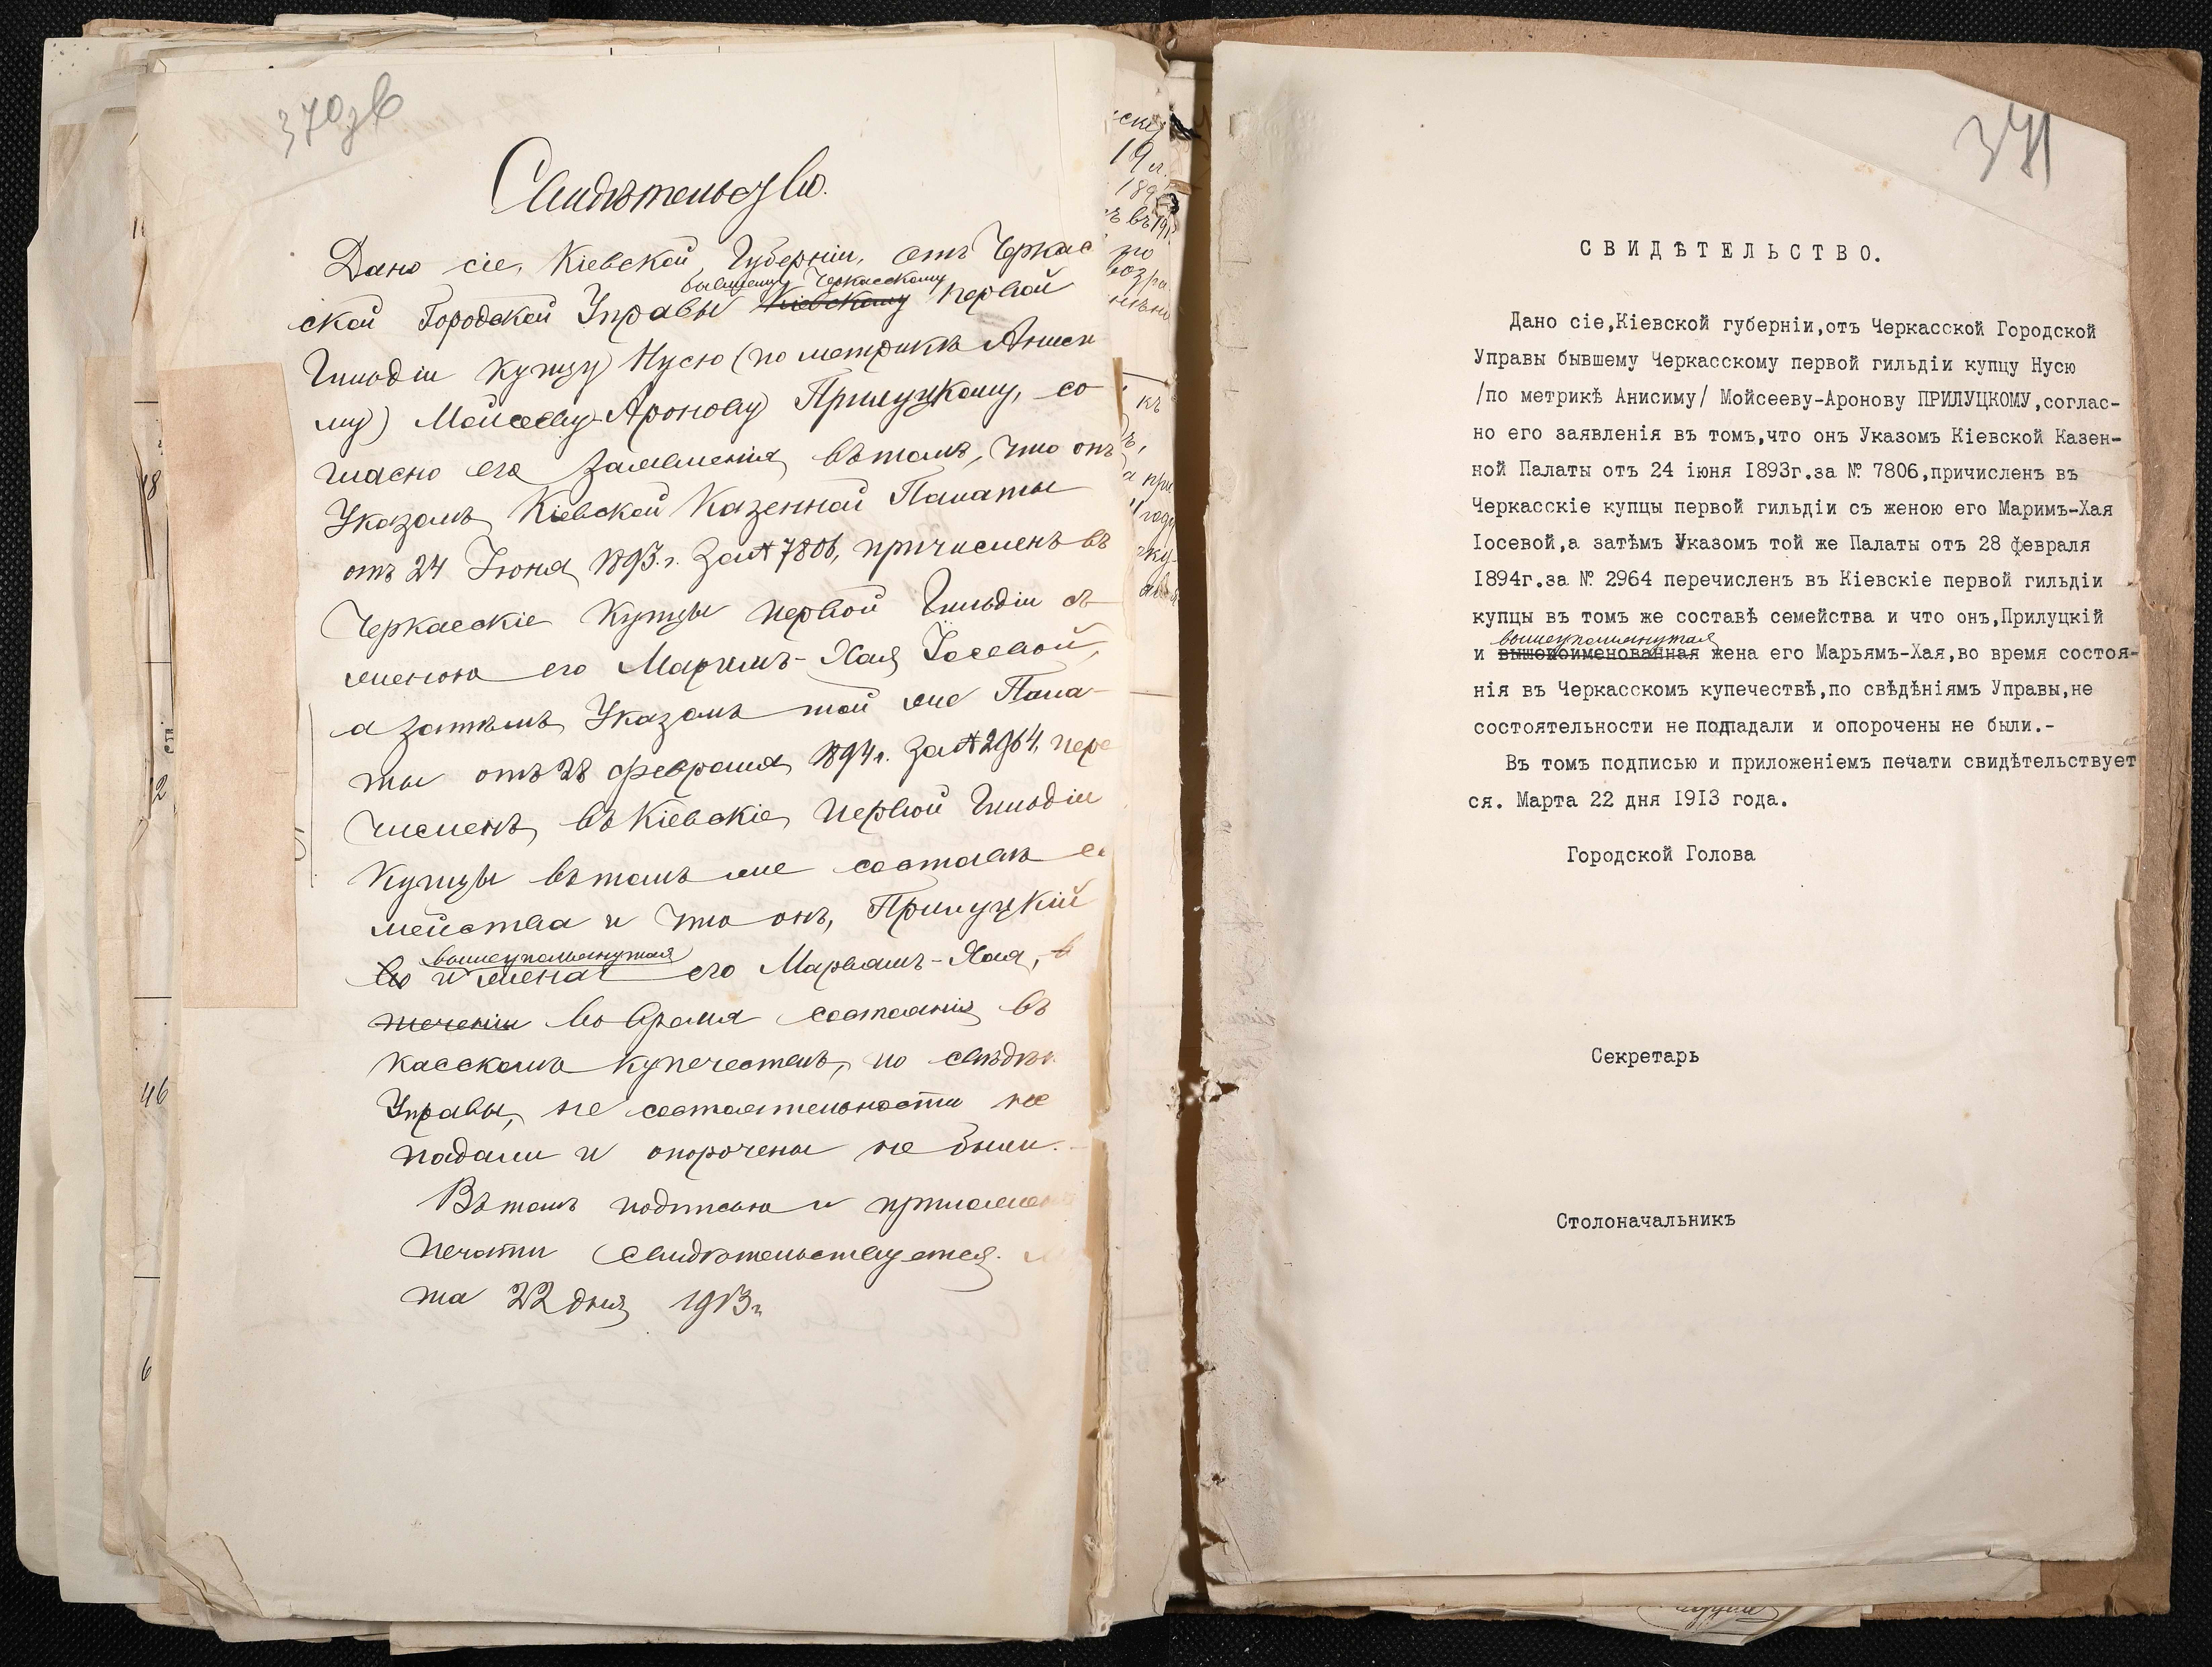 370зв
Свидѣтельство.
Дано сіе, Кіевской Губерніи, отъ Черкас
бывшему Черкасскому
ской Городской Управы Кіевскому первой
Гильдіи купцу Нусю (по метрикѣ Аниси
му) Мойсееву-Аронову Прилуцкому, со
гласно его заявленія въ томъ, что онъ
Указомъ Кіевской Казенной Палаты
отъ 24 Іюня 1893 г. за № 7806, причисленъ въ
Черкасскіе купцы первой Гильдіи съ
женою его Маримъ-Хая Іосевой,
а затѣмъ Указомъ той же Пала-
ты отъ 28 февраля 1894 г. за № 2964, пере
численъ въ Кіевскіе первой Гильдіи
купцы въ томъ же составѣ се
мейства и что онъ, Прилуцкій
вышеупомянутая
во и жена его Марьямъ-Хая, в
теченіи во время состоянія въ
касскомъ купечествѣ, по свѣдѣн
Управы, не состоятельности не
падали и опорочены не были.-
Въ томъ подписью и приложен
печати свидѣтельствуется. М
та 22 дня 1913 г.
371
СВИДѢТЕЛЬСТВО.
Дано сіе,Кіевской губерніи,отъ Черкасской Городской
Управы бывшему Черкасскому первой гильдіи купцу Нусю
/по метрикѣ Анисиму/ Мойсееву-Аронову ПРИЛУЦКОМУ,соглас-
но его заявленія въ томъ,что онъ Указомъ Кіевской Казен-
ной Палаты отъ 24 іюня 1893г.за № 7806,причисленъ въ
Черкасскіе купцы первой гильдіи съ женою его Маримъ-Хая
Іосевой,а затѣмъ Указомъ той же Палаты отъ 28 февраля
1894г.за № 2964 перечисленъ въ Кіевскіе первой гильдіи
купцы въ томъ же составѣ семейства и что онъ,Прилуцкій
вышеупомянутая
и вышепоименованная жена его Марьямъ-Хая,во время состоя-
нія въ Черкасскомъ купечествѣ,по свѣдѣніямъ Управы,не
состоятельности не подпадали и опорочены не были.-
Въ томъ подписью и приложеніемъ печати свидѣтельствует
ся. Марта 22 дня 1913 года.
Городской Голова
Секретарь
Столоначальникъ